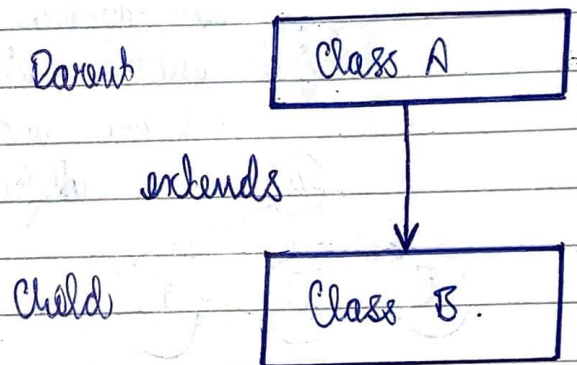 Parent
Class A
extends
Child
Class B.